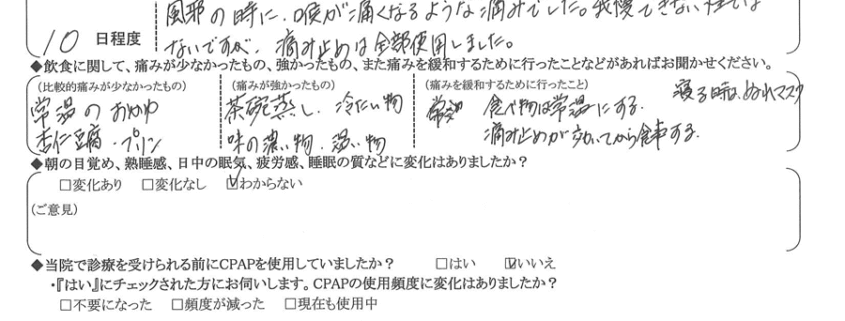 風邪の時に、喉が痛くなるような痛みでした。我慢できない程では
10 日程度 ないですが、痛み止めは全部使用しました。
◆飲食に関して、痛みが少なかったもの、強かったもの、また痛みを緩和するために行ったことなどがあればお聞かせください。
(比較的痛みが少なかったもの) (痛みが強かったもの) (痛みを緩和するために行ったこと)
常温のおかゆ 茶碗蒸し、冷たい物 食べ物は常温にする。 寝る時は、ぬれマスク
杏仁豆腐・プリン 味の濃い物、温い物 痛み止めが効いてから食事する。
◆朝の目覚め、熟睡感、日中の眠気、疲労感、睡眠の質などに変化はありましたか？
□変化あり □変化なし ☑わからない
(ご意見)
◆当院で診療を受けられる前にCPAPを使用していましたか？ □はい ☑いいえ
・『はい』にチェックされた方にお伺いします。CPAPの使用頻度に変化はありましたか？
□不要になった □頻度が減った □現在も使用中